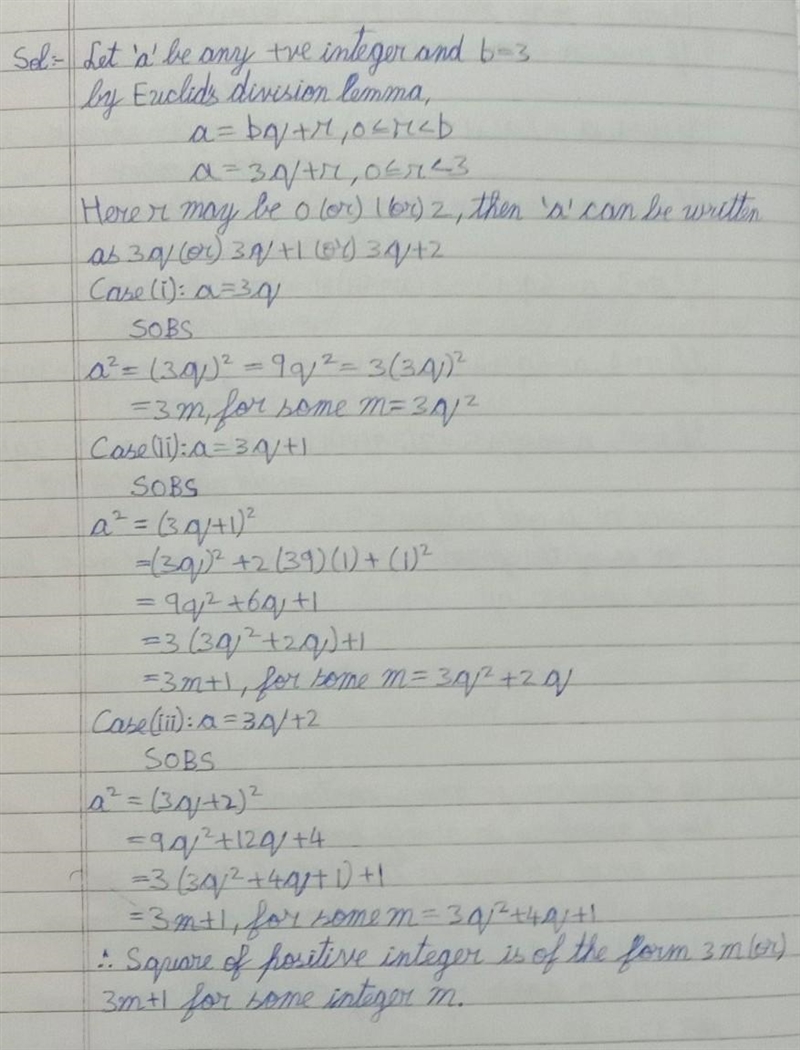 Sol:- Let 'a' be any +ve integer and b=3
by Euclid's division lemma,
a = bq+r, 0≤r<b
a = 3q+r, 0≤r<3
Here r may be 0 (or) 1 (or) 2, then 'a' can be written
as 3q (or) 3q+1 (or) 3q+2
Case(i): a=3q
SOBS
a² = (3q)² = 9q² = 3(3q)²
=3m, for some m=3q²
Case(ii): a=3q+1
SOBS
a² = (3q+1)²
=(3q)²+2(3q)(1)+(1)²
= 9q²+6q+1
=3(3q²+2q)+1
=3m+1, for some m=3q²+2q
Case(iii): a=3q+2
SOBS
a² = (3q+2)²
=9q²+12q+4
=3(3q²+4q+1)+1
=3m+1, for some m=3q²+4q+1
∴ Square of positive integer is of the form 3m (or)
3m+1 for some integer m.